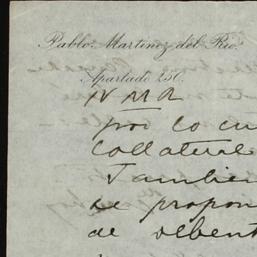 Pablo Martinez del Rio.
Apartado 250.
N M R
por lo cu
Collateral
Tambie
se propon
de debent